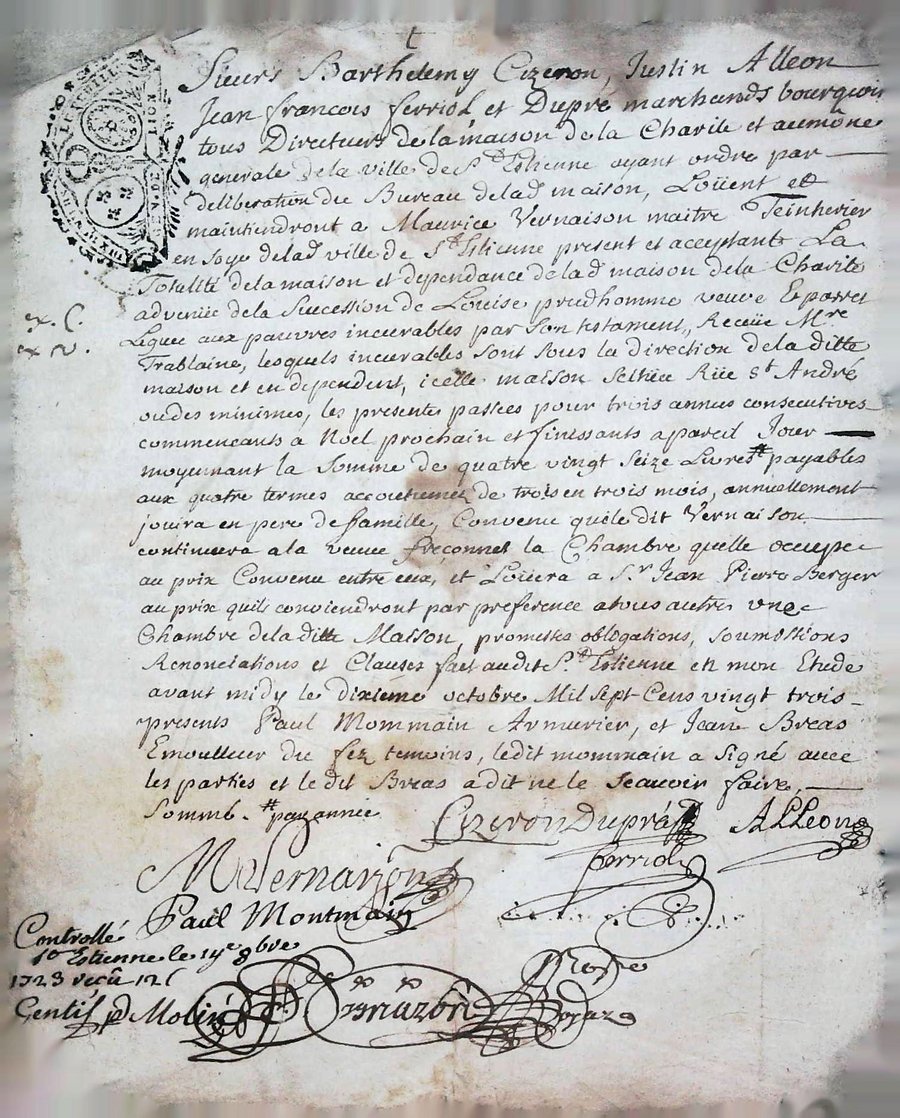 t
Sieurs Barthelemy Cizeron, Justin Alleon
Jean francois ferriol et Dupré marchands bourgeois
tous Directeurs de la maison de la Charite et aumône
generale de la ville de St Estienne ayant ordre par
deliberation du Bureau delad maison, Loüent et
maintiendront a Maurice Vernaison maitre Teinturier
en soye delad ville de St Estienne present et acceptant La
Totalité dela maison et dependance delad maison dela Charité
advenüe dela Succession de Louise prudhomme veuve Eparret
Leguée aux pauvres incurables par son testament, Receüe Mre
Trablaine, lesquels incurables sont sous la direction dela ditte
maison et en dependent, icelle maison scituée Rüe st André
ou des minimes, les presentes passées pour trois années consecutives
commencants a Noel prochain et finissants a pareil Jour
moyennant la somme de quatre vingt seize Livres # payables
aux quatre termes accoutumez de trois en trois mois, annuellement
jouira en pere de famille, Convenu que ledit Vernaison
continuera a la veuve freçonnet la Chambre quelle occupe
au prix Convenu entre eux, et Loüera a Sr Jean Pierre Berger
au prix quils conviendront par preference a tous autres une
Chambre dela ditte Maison, promettes obligations, soumissions
Renonciations et Clauses fait audit St Estienne en mon Etude
avant midy le dixieme octobre Mil sept Cens vingt trois
presents Paul Mommain Armurier, et Jean Breas
Emoulleur du fez temoins, ledit mommain a signé avec
les parties et ledit Breas a dit ne le sçauoir faire,
Sommé. # par année
Cizeron Dupré Alleon
M Vernaizon ferriol
Paul Montmain
ex. C.
ex N.
Controllé
St Estienne le 14e 8bre
1723 reçu 12 s
Gentil p Molin